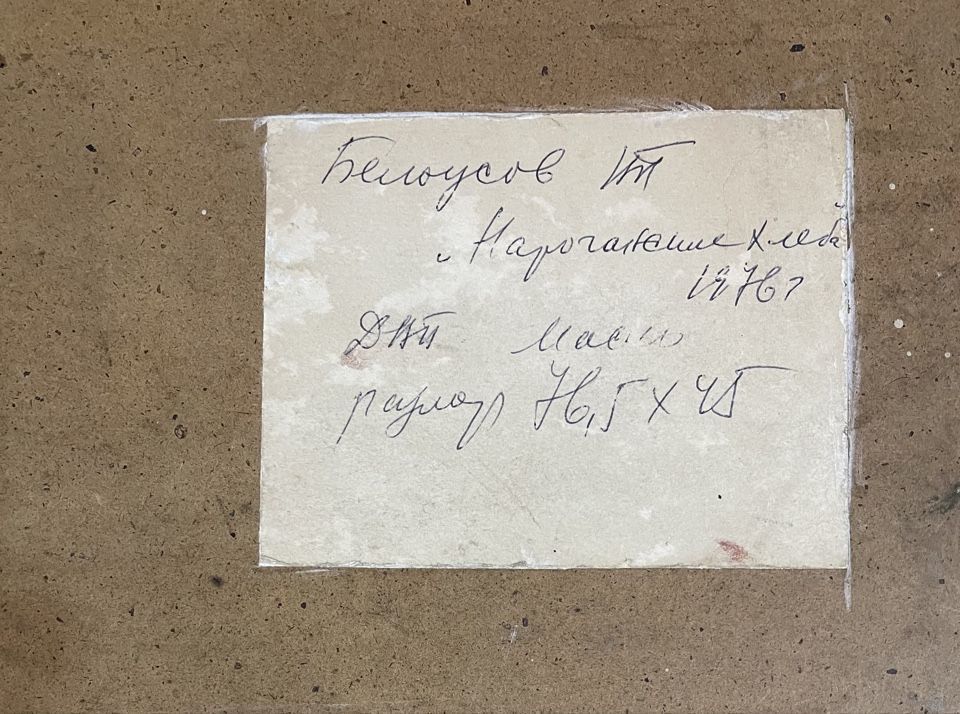 Белоусов
„Нарочанские хлеба
1976 г
ДВП масло
размер 76,5 х 45